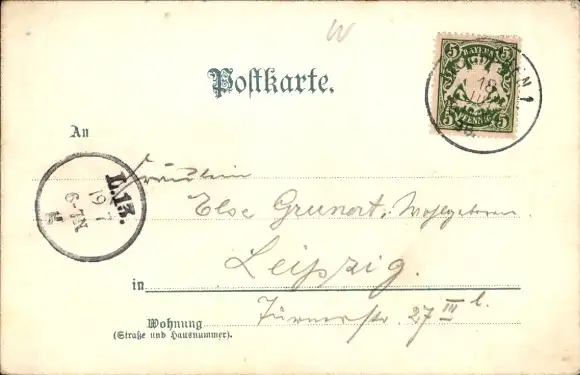 W
Postkarte.
5 BAYERN 5
5 PFENNIG 5
EN 1.
18
98.
An
L.13.
19 7
6-7N
Fräulein
Else Grunert, Wohlgeboren
in Leipzig.
Türnerstr. 27 III l.
Wohnung
(Straße und Hausnummer).